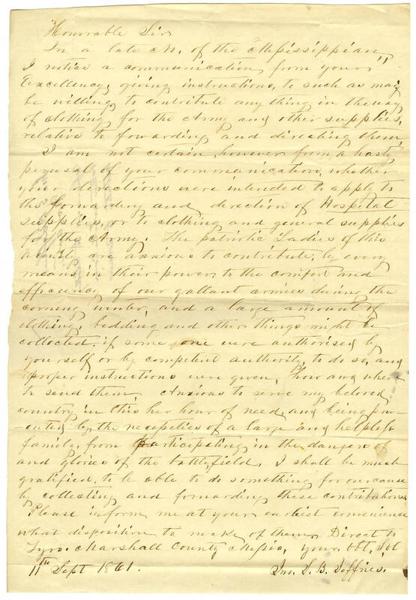 Honorable Sir
In a late No. of the Mississippian,
I notice a communication from your
Excellency, giving instructions, to such as may
be willing to contribute any thing in the way
of clothing for the Army and other supplies,
relative to forwarding and directing them,
I am not certain, however from a hasty
perusal of your communication, whether
your directions were intended to apply to
the forwarding and direction of Hospital
supplies, or to clothing and general supplies
for the Army. The patriotic Ladies of this
are anxious to contribute by every
means in their power, to the comfort and
efficiency of our gallant armies during the
coming winter, and a large amount of
clothing, bedding and other things might be
collected if some one were authorised by
yourself or by competent authority to do so, and
proper instructions were given, how and where
to send them. Anxious to serve my beloved
country in this her hour of need, and being
by the necessities of a large and helpless
family, from participating in the dangers of
and glories of the battlefield, I shall be much
gratified to be able to do something for our cause
by collecting and forwarding these contributions
Please inform me at your earliest convenience
what disposition to make of them. Direct to
Tyro, Marshall County, Missi., your obt. svt
11th Sept 1861. Jno. S. B. Jeffries.